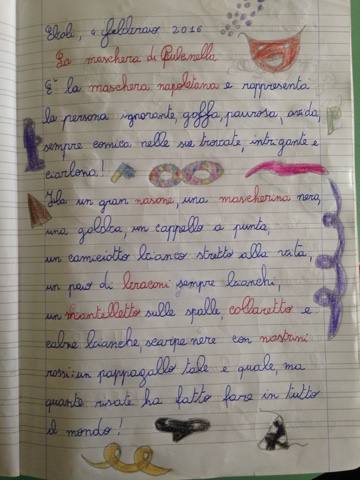 Eboli, 4 febbraio 2016
La maschera di Pulcinella
E' la maschera napoletana e rappresenta
la persona ignorante, goffa, paurosa, avida,
sempre comica nelle sue trovate, intrigante e
ciarlona!
Ha un gran nasone, una mascherina nera,
una gobba, un cappello a punta,
un camiciotto bianco stretto alla vita,
un paio di braconi sempre bianchi,
un mantelletto sulle spalle, collaretto e
calze bianche, scarpe nere con nastrini
rossi: un pappagallo tale e quale, ma
quante risate ha fatto fare in tutto
il mondo!